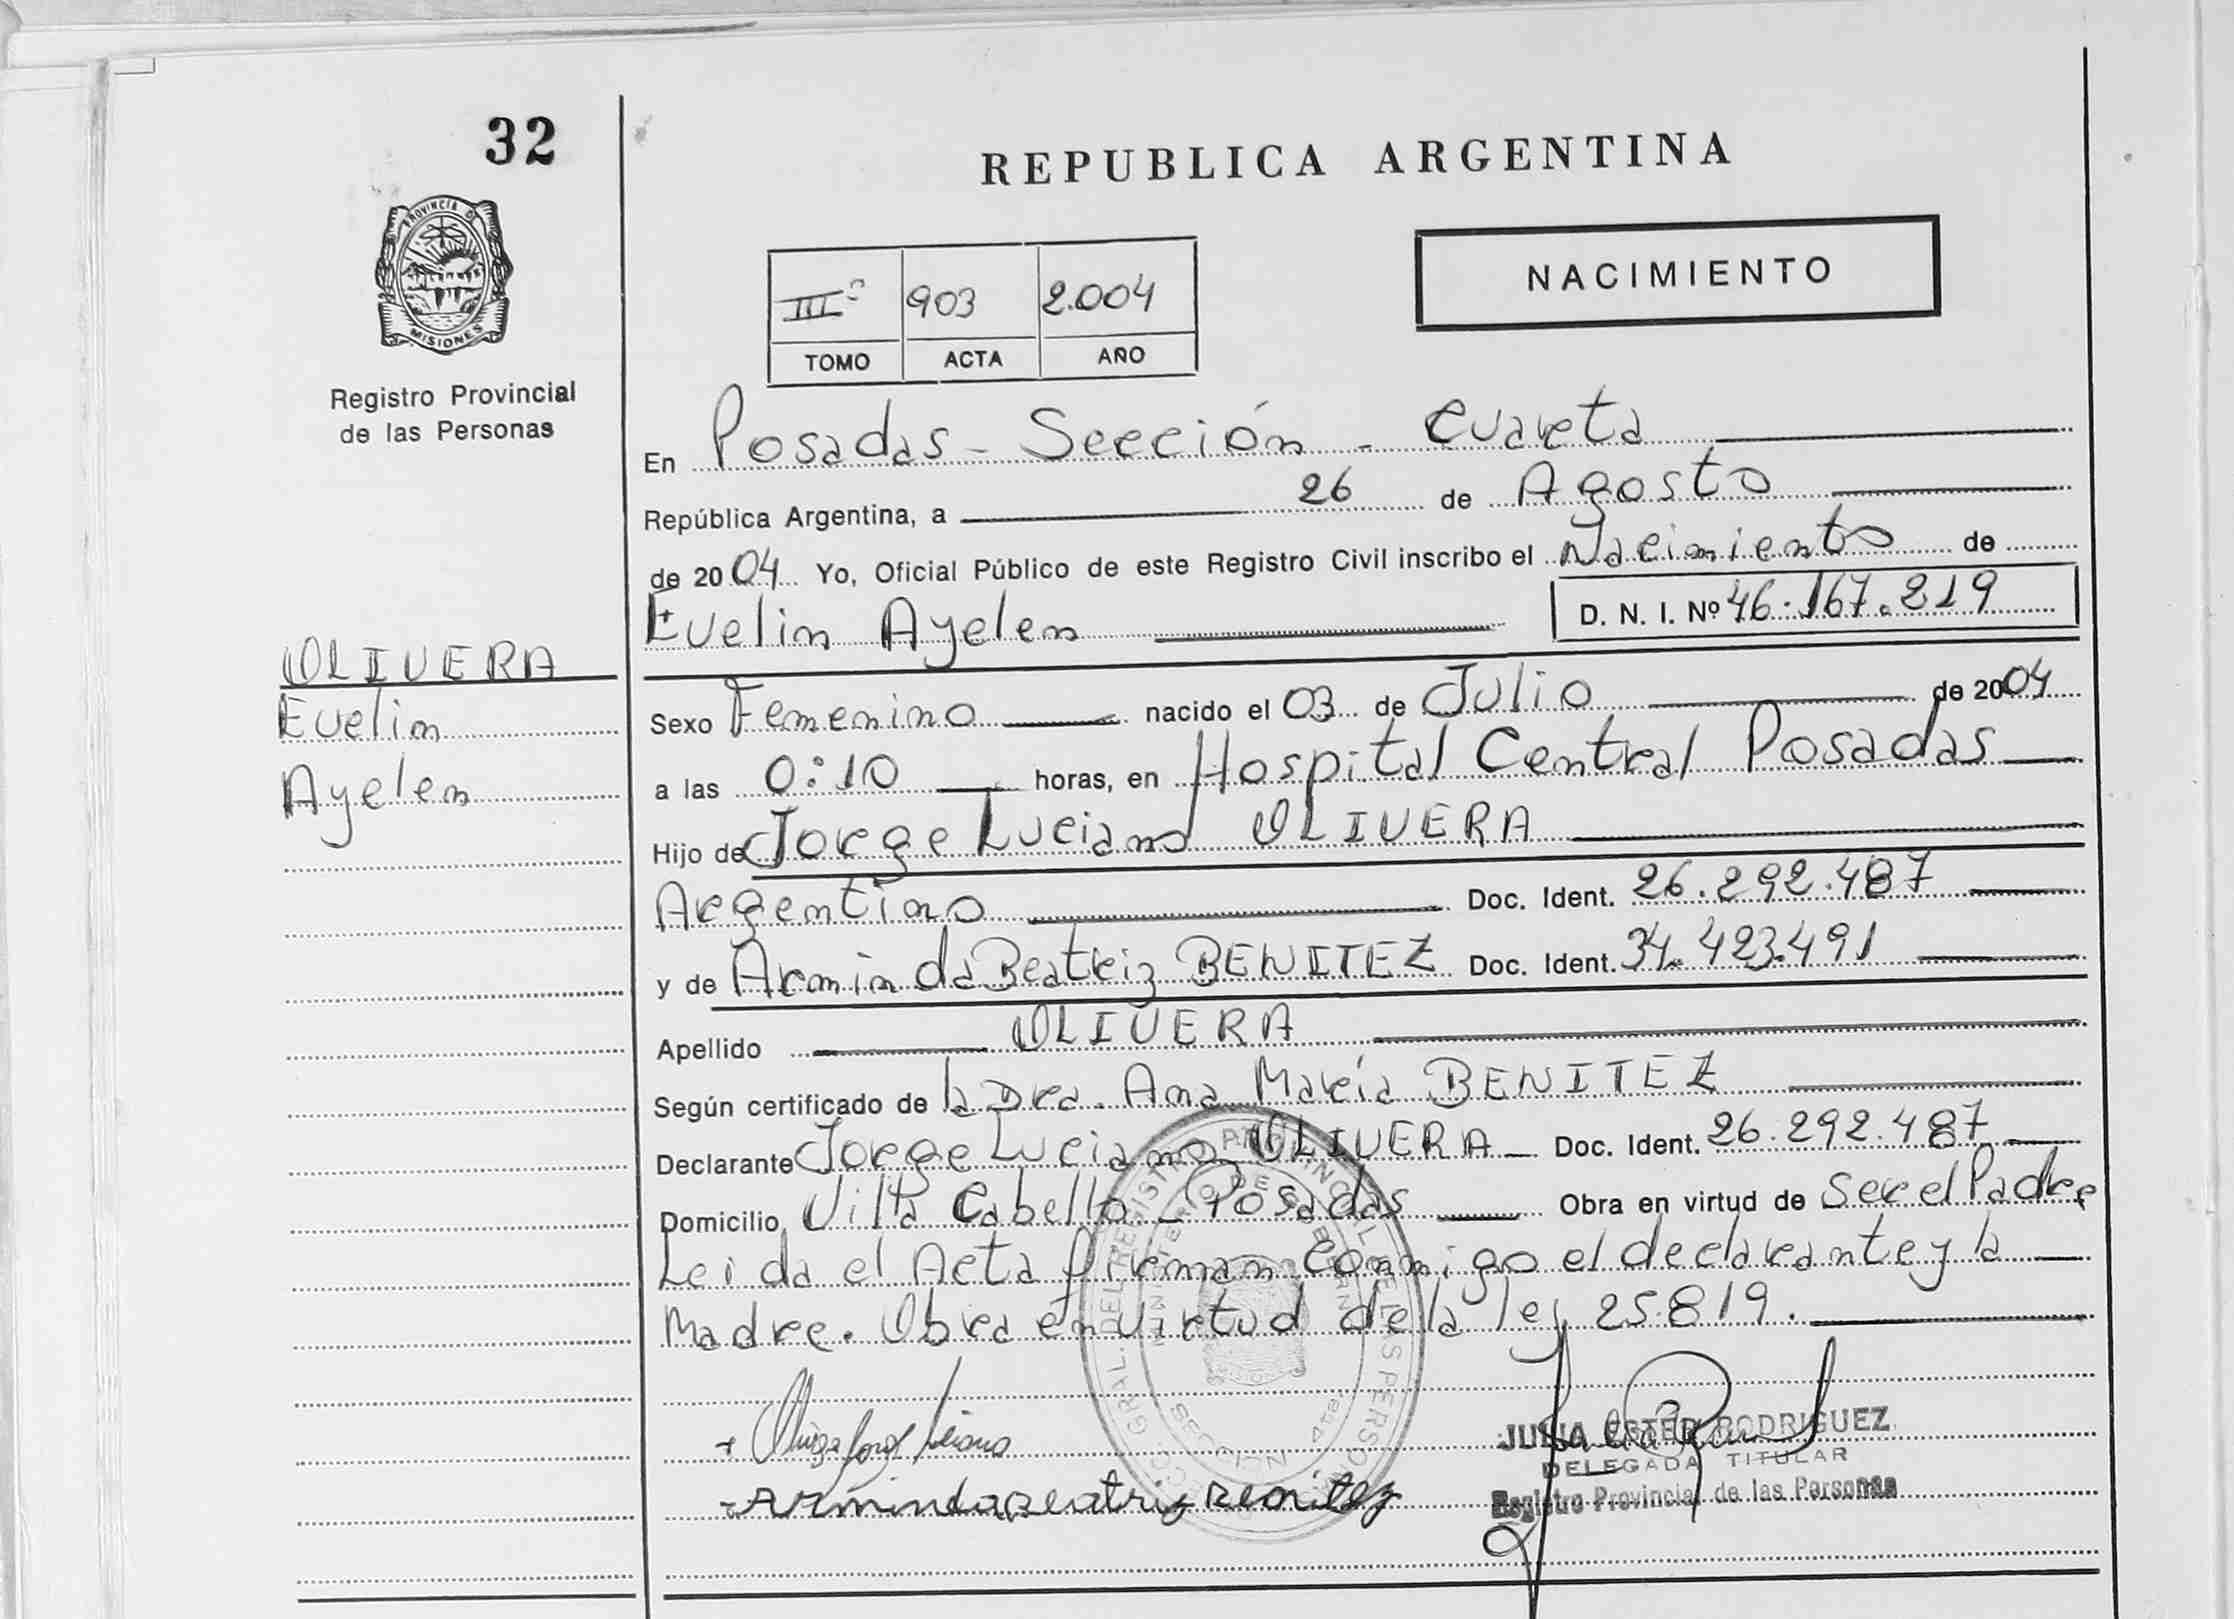 32
REPUBLICA ARGENTINA
PROVINCIA DE
MISIONES
Registro Provincial
de las Personas
III° 903 2.004
TOMO ACTA AÑO
NACIMIENTO
En Posadas - Sección - Cuarta
República Argentina, a 26 de Agosto
de 2004 Yo, Oficial Público de este Registro Civil inscribo el Nacimiento de
Evelin Ayelen D. N. I. Nº 46.167.219
OLIVERA
Evelin
Ayelen
Sexo Femenino nacido el 03 de Julio de 2004
a las 0:10 horas, en Hospital Central Posadas
Hijo de Jorge Luciano OLIVERA
Argentino Doc. Ident. 26.292.487
y de Arminda Beatriz BENITEZ Doc. Ident. 34.423.491
Apellido OLIVERA
Según certificado de la Dra. Ana María BENITEZ
Declarante Jorge Luciano OLIVERA Doc. Ident. 26.292.487
Domicilio Villa Cabello - Posadas Obra en virtud de Ser el Padre
Leida el Acta firman conmigo el declarante y la
Madre. Obra en virtud de la ley 25.819.
JULIA ESTER RODRIGUEZ
DELEGADA TITULAR
Registro Provincial de las Personas
Arminda Beatriz Benitez